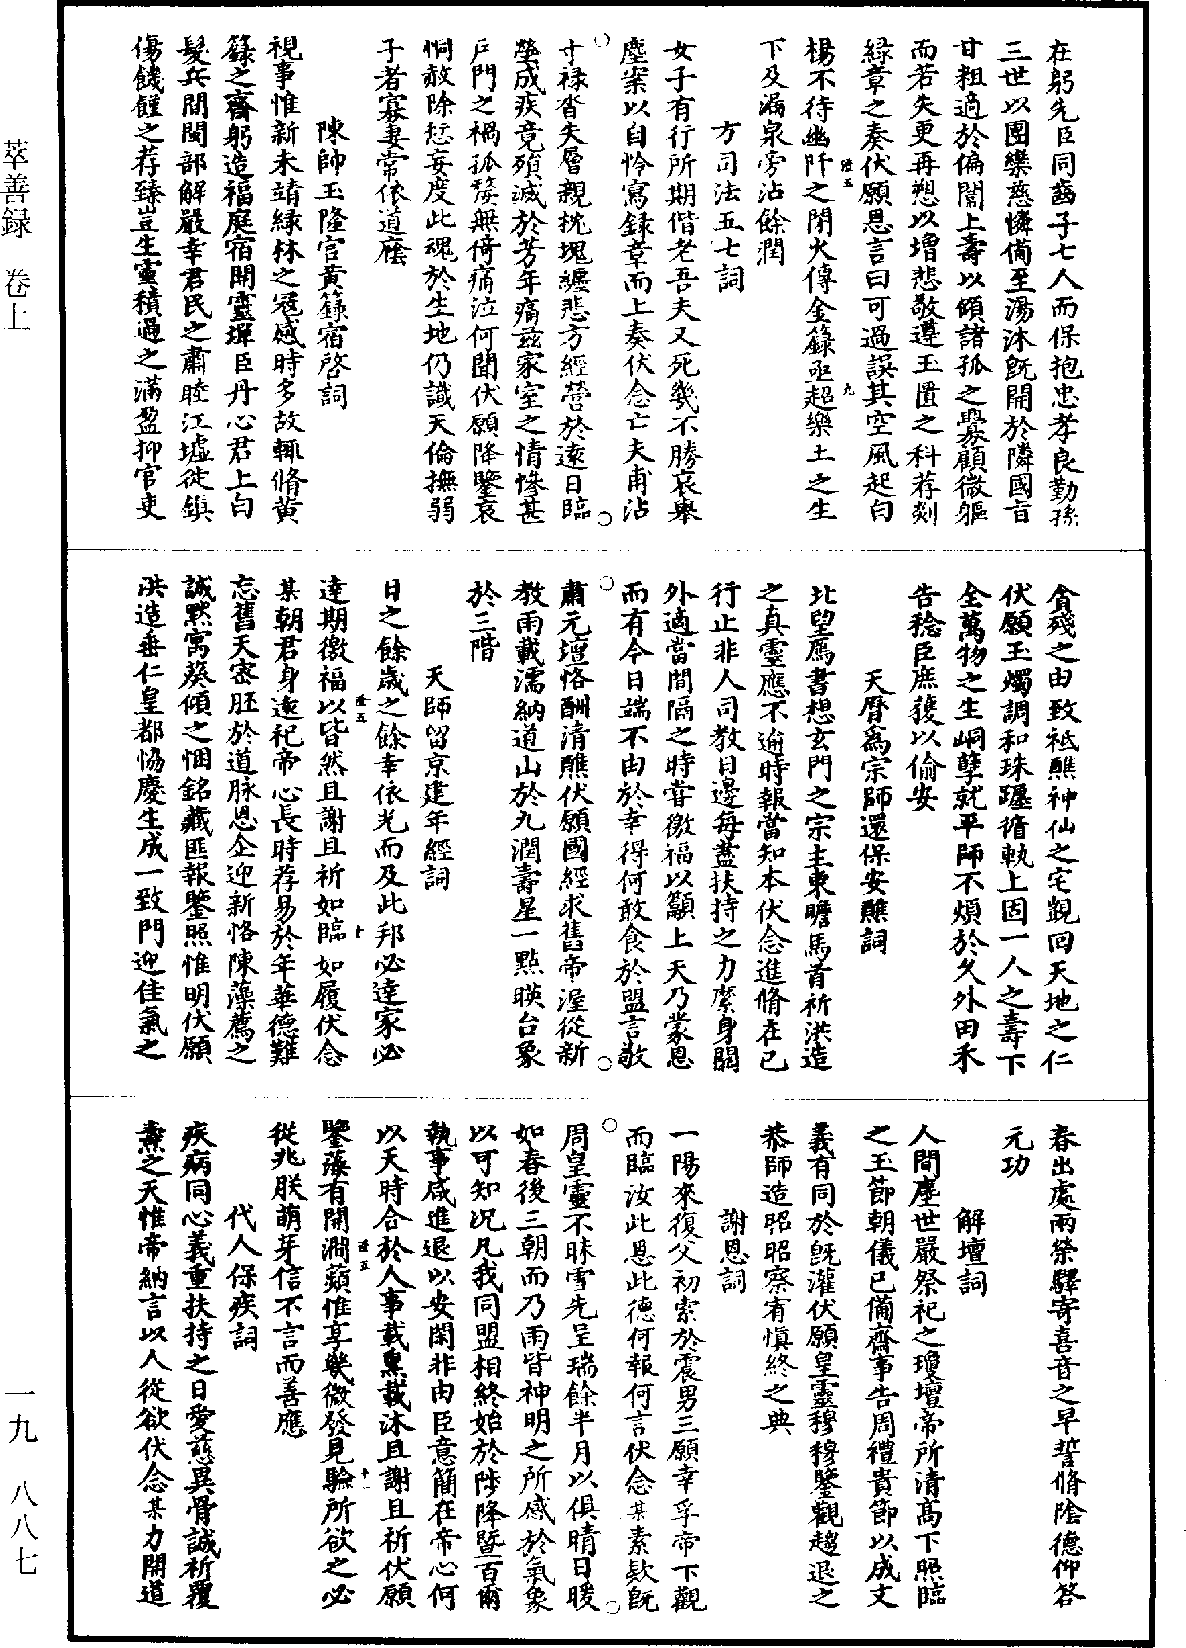 在躬先臣同齒子七人而保抱忠孝良勤孫
三世以團欒慈憐備至湯沐既開於隣國旨
甘粗適於偏闈上壽以頒諸孤之釁顧微軀
而若失更再愬以增悲敬遵玉匱之科荐剡
綠章之奏伏願恩言曰可過誤其空風起白
楊不待幽阡之閉火傳金籙亟超樂土之生
下及漏泉旁沾餘潤
方司法五七詞
女子有行所期偕老吾夫又死幾不勝哀舉
塵案以自怜寫錄章而上奏伏念亡夫甫沾
寸祿沓失層親枕塊纏悲方經營於遠日臨
塋成疾竟殞滅於芳年痛茲家室之情慘甚
戶門之禍孤嫠無倚痛泣何聞伏願降鑒哀
恫赦除愆妄度此魂於生地仍識天倫撫弱
子者寡妻常依道廕
陳師玉隆宮黃籙宿啓詞
視事惟新未靖綠林之寇感時多故輒脩黃
籙之齋躬造福庭宿開靈墠臣丹心君上白
髮兵間閫部解嚴幸君民之肅睦江墟徙鎮
傷饑饉之荐臻豈生靈積過之滿盈抑官吏
貪殘之由致祗醮神仙之宅覬回天地之仁
伏願玉燭調和珠躔循軌上固一人之壽下
全萬物之生峒孽就平師不煩於久外田禾
告稔臣庶獲以偷安
天曆為宗師還保安醮詞
北望鴈書想玄門之宗主東瞻馬首祈洪造
之真靈應不逾時報當知本伏念進脩在己
行止非人司教日邊每藎扶持之力縻身閫
外適當間隔之時嘗徼福以籲上天乃蒙恩
而有今日端不由於幸得何敢食於盟言敬
肅元壇恪酬清醮伏願國經求舊帝渥從新
教雨載濡納道山於九潤壽星一點暎台象
於三階
天師留京建年經詞
日之餘歲之餘幸依光而及此邦必達家必
達期徼福以皆然且謝且祈如臨如履伏念
某朝君身遠祀帝心長時荐易於年華德難
忘舊天寄胚於道脉恩企迎新恪陳藻薦之
誠默寓葵傾之悃銘藏匪報鑒照惟明伏願
洪造垂仁皇都恊慶生成一致門迎佳氣之
春出處兩榮驛寄喜音之早誓脩陰德仰答
元功
解壇詞
人間塵世嚴祭祀之瓊壇帝所清高下照臨
之玉節朝儀已備齋事告周禮貴節以成文
義有同於既灌伏願皇靈穆穆鑒觀趨退之
恭師造昭昭察宥慎終之典
謝恩詞
一陽來復父初索於震男三願幸孚帝下觀
而臨汝此恩此德何報何言伏念某素欵既
周皇靈不昧雪先呈瑞餘半月以俱晴日暖
如春後三朝而乃雨皆神明之所感於氣象
以可知况凡我同盟相終始於陟降暨百爾
執事咸進退以安閑非由臣意簡在帝心何
以天時合於人事載熏載沐且謝且祈伏願
鑒藻有開澗蘋惟享幾微發見驗所欲之必
從兆朕萌芽信不言而善應
代人保疾詞
疾病同心義重扶持之日愛慈異骨誠祈覆
燾之天惟帝納言以人從欲伏念某力開道
萃善錄 卷上
一九 八八七
隆五
九
隆五
十
隆五
十一